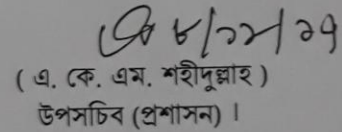 ৮/১২/২৭
( এ. কে. এম. শরীদুল্লার )
উপসচিব (প্রশাসন) ।